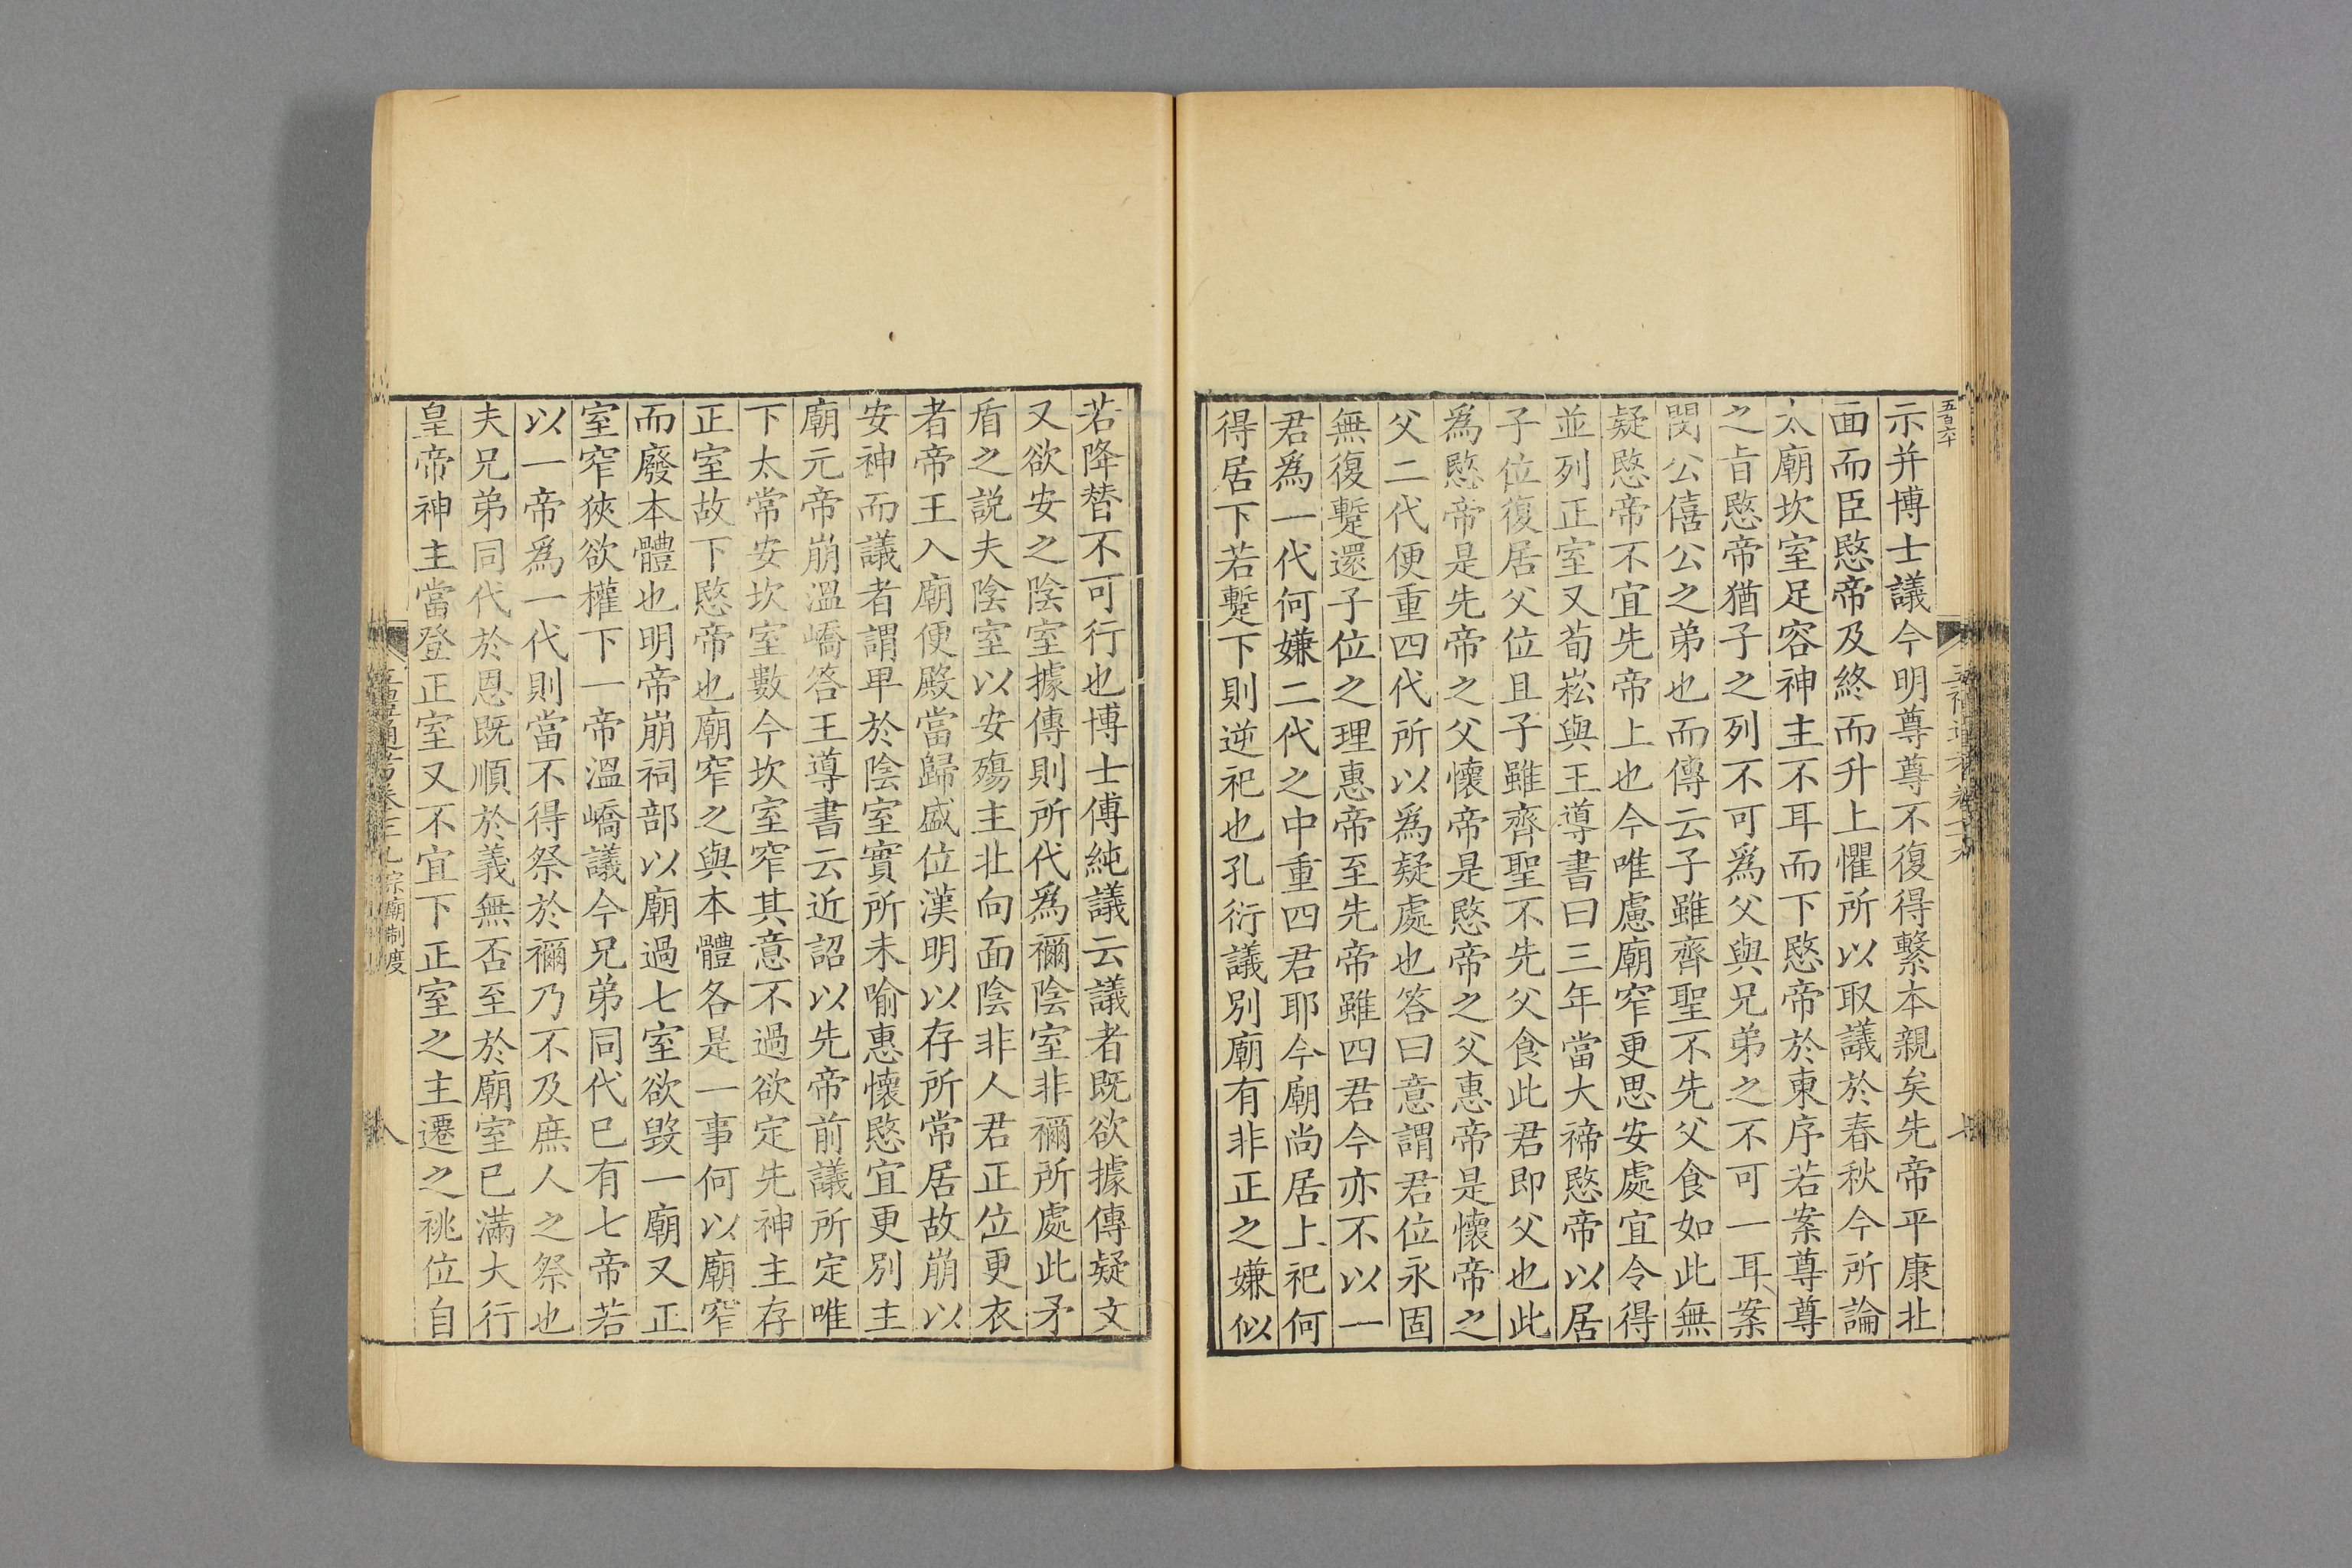 五百六十
示并博士議今明尊尊不復得繫本親矣先帝平康北
面而臣愍帝及終而升上懼所以取議於春秋今所論
太廟坎室足容神主不耳而下愍帝於東序若案尊尊
之㫖愍帝猶子之列不可為父與兄弟之不可一耳案
閔公僖公之弟也而傳云子雖齊聖不先父食如此無
疑愍帝不宜先帝上也今唯慮廟窄更思安處宜令得
並列正室又荀崧與王導書曰三年當大禘愍帝以居
子位復居父位且子雖齊聖不先父食此君即父也此
為愍帝是先帝之父懷帝是愍帝之父惠帝是懷帝之
父二代便重四代所以為疑處也答曰意謂君位永固
無復蹔還子位之理惠帝至先帝雖四君今亦不以一
君為一代何嫌二代之中重四君耶今廟尚居上祀何
得居下若蹔下則逆祀也孔衍議別廟有非正之嫌似
若降替不可行也博士傅純議云議者既欲據傳疑文
又欲安之陰室據傳則所代為禰陰室非禰所處此矛
盾之説夫陰室以安殤主北向面陰非人君正位更衣
者帝王入廟便殿當歸盛位漢明以存所常居故崩以
安神而議者謂卑於陰室實所未喻惠懷愍宜更別主
廟元帝崩溫嶠答王導書云近詔以先帝前議所定唯
下太常安坎室數今坎室窄其意不過欲定先神主存
正室故下愍帝也廟窄之與本體各是一事何以廟窄
而廢本體也明帝崩祠部以廟過七室欲毀一廟又正
室窄狹欲權下一帝溫嶠議今兄弟同代已有七帝若
以一帝為一代則當不得祭於禰乃不及庶人之祭也
夫兄弟同代於恩既順於義無否至於廟室已滿大行
皇帝神主當登正室又不宜下正室之主遷之祧位自
宗廟制度
八